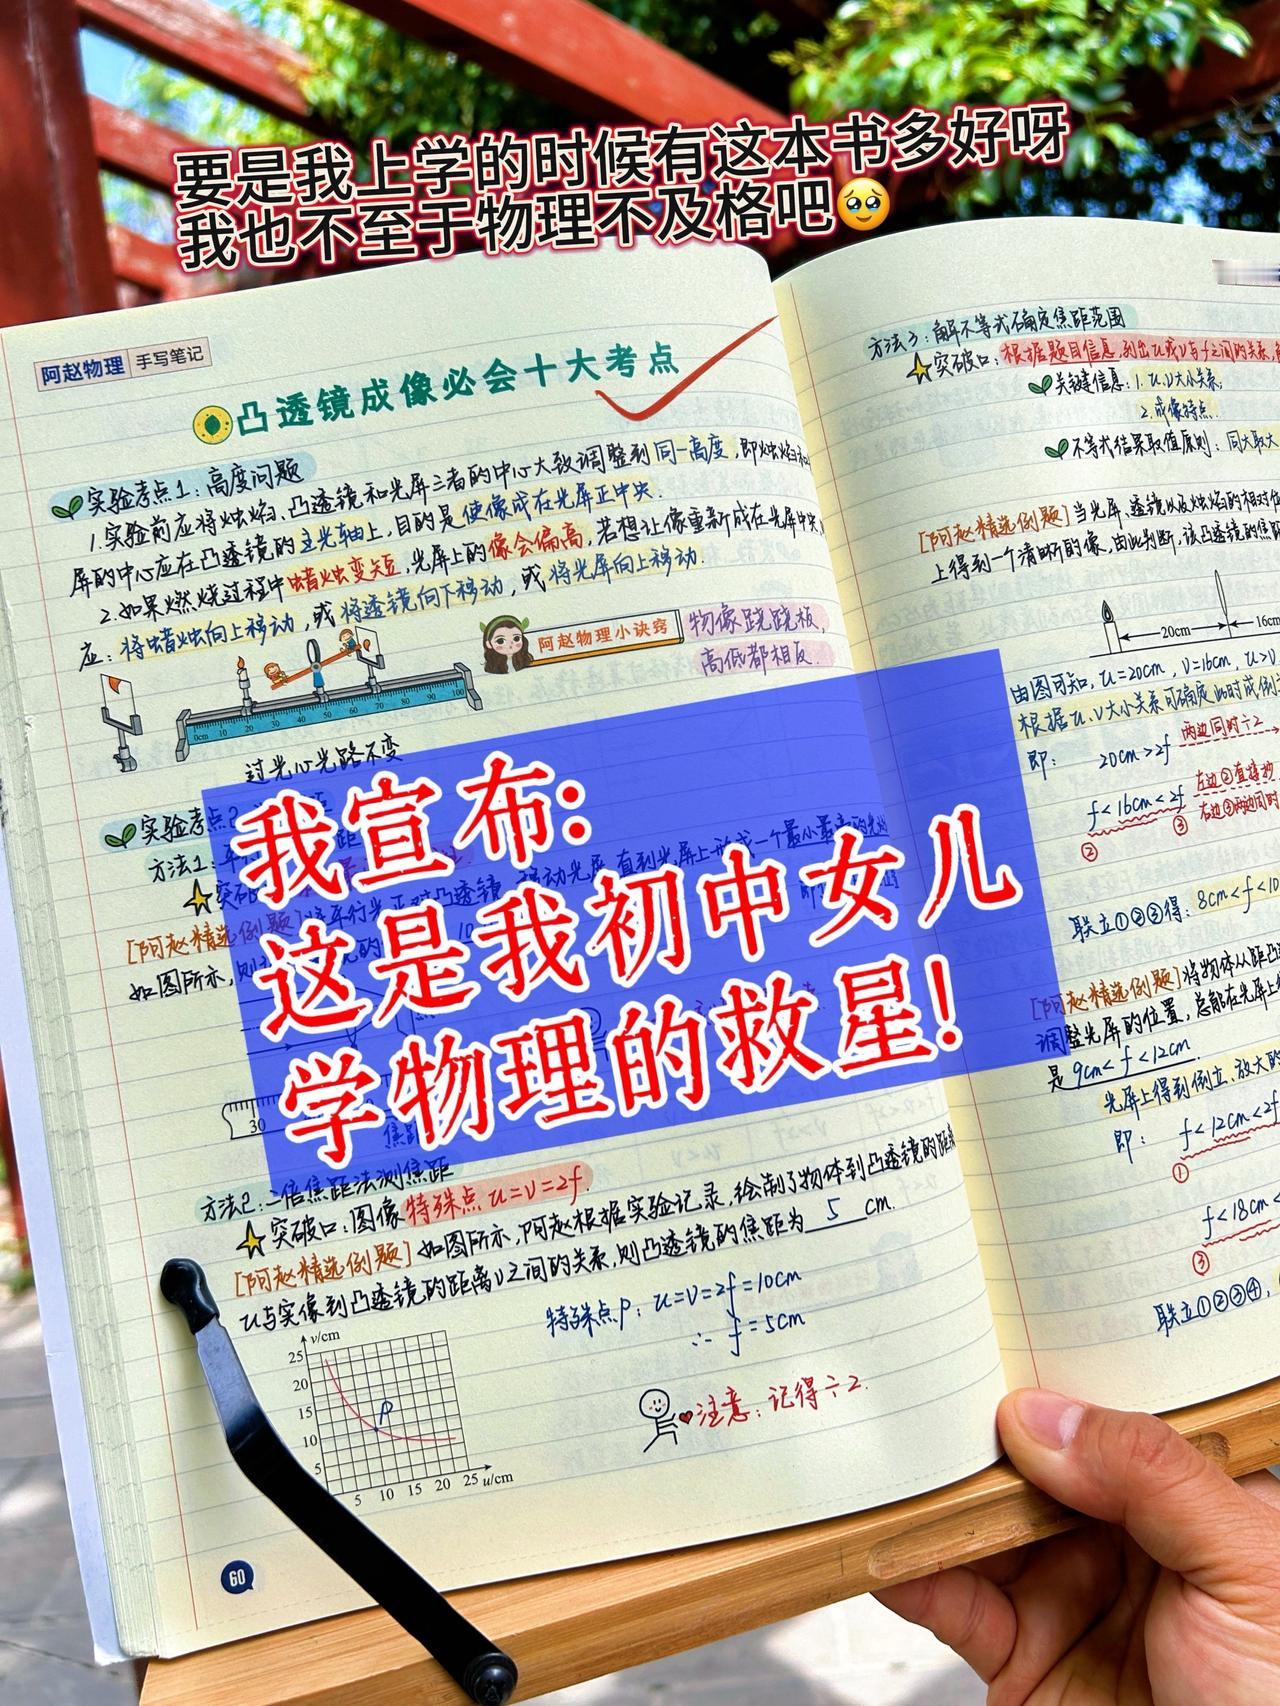 要是我上学的时候有这本书多好呀
我也不至于物理不及格吧🥹
阿赵物理 手写笔记
凸透镜成像必会十大考点
实验考点1：高度问题
1.实验前应将烛焰、凸透镜和光屏三者的中心大致调整到同一高度，即烛焰和
屏的中心应在凸透镜的主光轴上，目的是使像成在光屏正中央.
2.如果燃烧过程中蜡烛变短，光屏上的像会偏高，若想让像重新成在光屏中央，
应：将蜡烛向上移动，或将透镜向下移动，或将光屏向上移动.
阿赵物理小诀窍
物像跷跷板，
高低都相反.
0cm 10 20 30 40 50 60 70 80 90 100
过光心光路不变
实验考点2
方法1：平行
突破
[阿赵精选例题]
如图所示，则
我宣布：
这是我初中女儿
学物理的救星！
30
方法2：二倍焦距法测焦距
突破口：图像特殊点u=v=2f.
[阿赵精选例题]如图所示，阿赵根据实验记录，绘制了物体到凸透镜的距离
u与实像到凸透镜的距离v之间的关系，则凸透镜的焦距为 5 cm.
特殊点P：u=v=2f=10cm
∴ f=5cm
注意：记得÷2.
v/cm
25
20
15
10
5
P
5 10 15 20 25 u/cm
60
方法3：解不等式确定焦距范围
突破口：根据题目信息，列出u或v与f之间的关系，
关键信息：1.u、v大小关系；
2.成像特点.
不等式结果取值原则：同大取大
[阿赵精选例题]当光屏、透镜以及烛焰的相对位
上得到一个清晰的像，由此判断，该凸透镜的焦距
20cm 16cm
由图可知，u=20cm，v=16cm，u>v
根据u、v大小关系可确定此时成倒
即：20cm>2f 两边同时÷2
f<16cm<2f
② ③
左边②直接抄
右边③两边同时
联立①②③得：8cm<f<10
[阿赵精选例题]将物体从距凸
调整光屏的位置，总能在光屏上
是9cm<f<12cm.
光屏上得到倒立、放大的
即：f<12cm<2f
①
f<18cm<
③
联立①②③④，